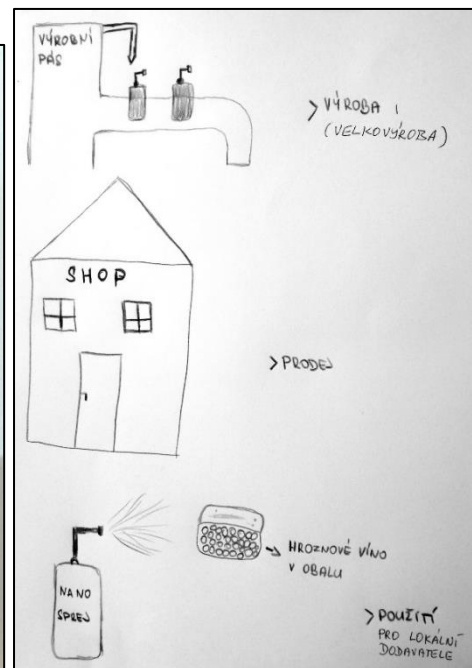 VÝROBNÍ
PÁS
> VÝROBA 1
(VELKOVÝROBA)
SHOP
> PRODEJ
NANO
SPREJ
→ HROZNOVÉ VÍNO
V OBALU
> POUŽITÍ
PRO LOKÁLNÍ
DODAVATELE